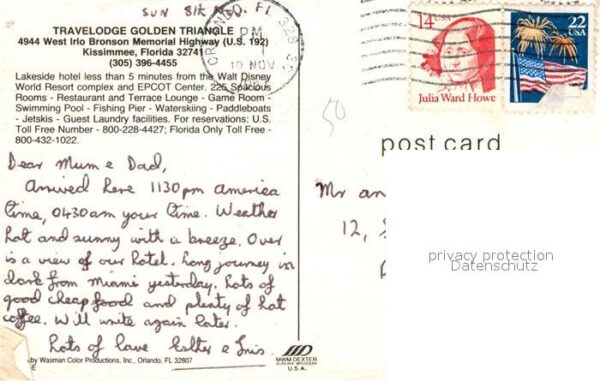 SUN 8th NOV.
TRAVELODGE GOLDEN TRIANGLE
4944 West Irlo Bronson Memorial Highway (U.S. 192)
Kissimmee, Florida 32741
(305) 396-4455
Lakeside hotel less than 5 minutes from the Walt Disney
World Resort complex and EPCOT Center. 225 Spacious
Rooms - Restaurant and Terrace Lounge - Game Room -
Swimming Pool - Fishing Pier - Waterskiing - Paddleboats
- Jetskis - Guest Laundry facilities. For reservations: U.S.
Toll Free Number - 800-228-4427; Florida Only Toll Free -
800-432-1022.
Dear Mum & Dad,
Arrived here 1130pm america
time, 0430am your time. Weather
hot and sunny with a breeze. Over
is a view of our hotel. Long journey in
dark from Miami yesterday. Lots of
good cheap food and plenty of hot
coffee. Will write again later.
Lots of love Esther & Iris
by Wasman Color Productions, Inc., Orlando, FL 32807
FL 328
PM
10 NOV
14¢
Julia Ward Howe
22
USA
50
post card
Mr an
12,
privacy protection
Datenschutz
MWM DEXTER
AURORA MISSOURI
U.S.A.